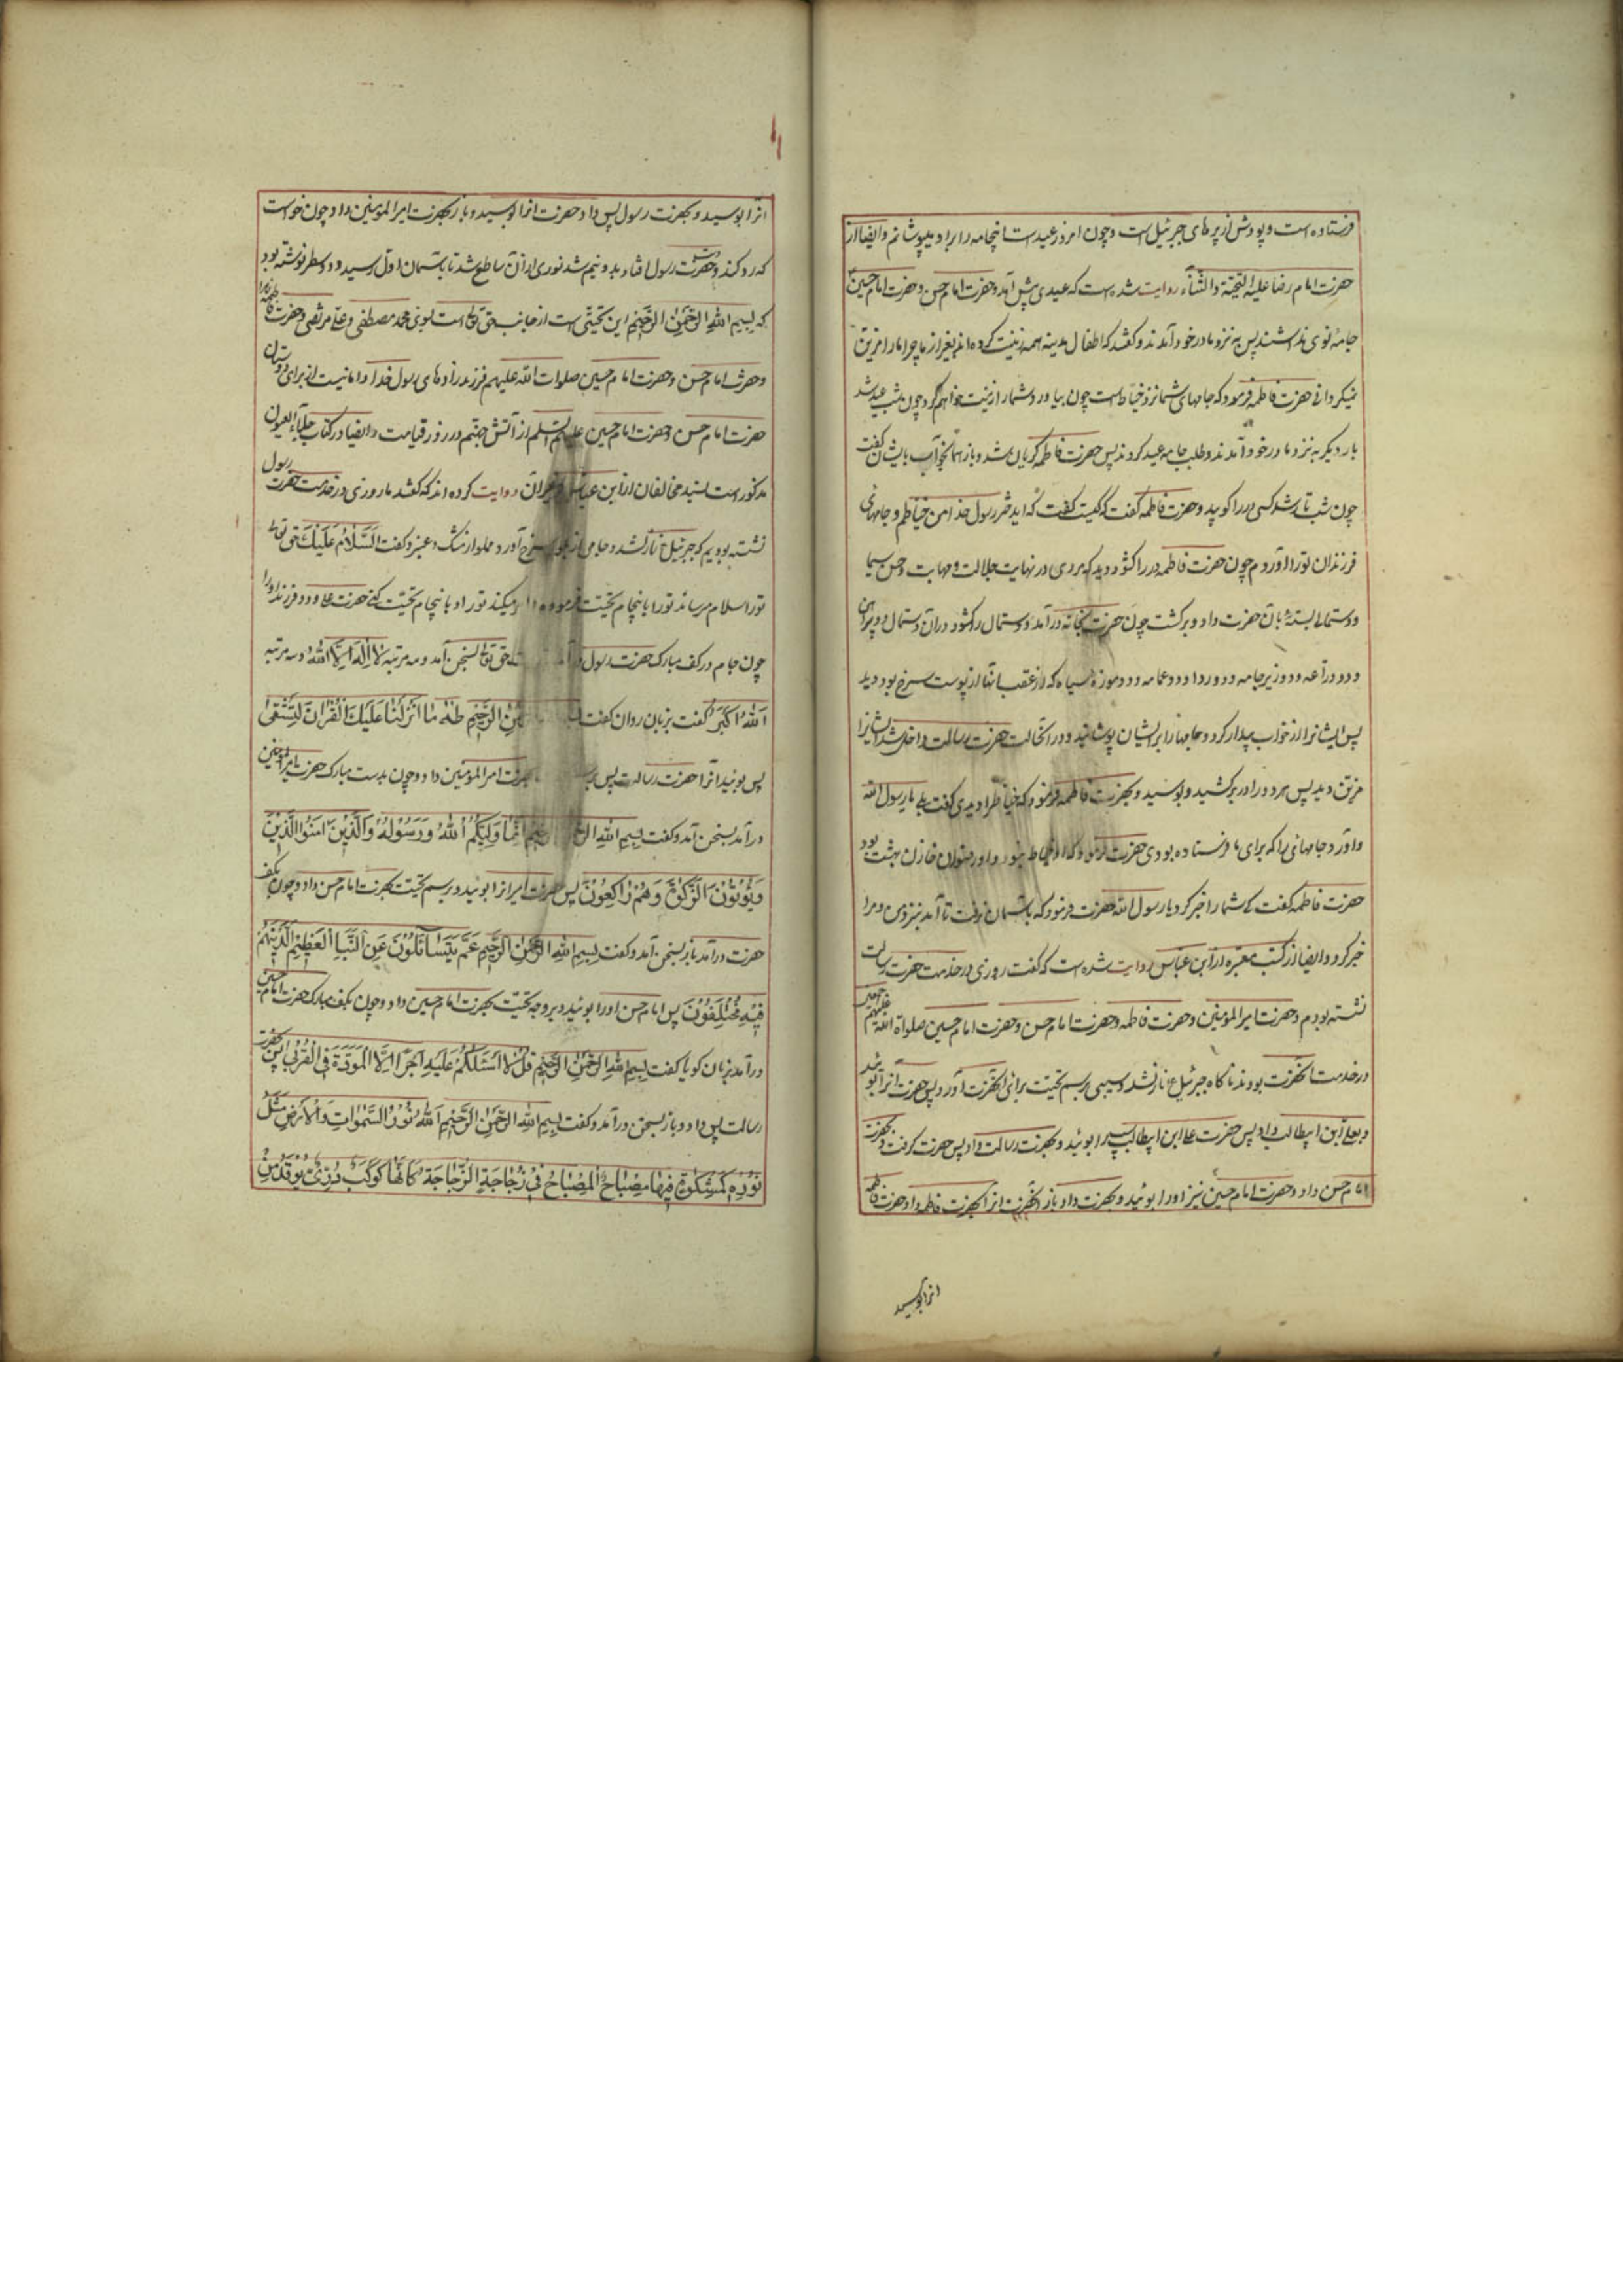 فرستاده است و پودش از پرهای جبرئیل است و چون امروز عید است اینجامه را براد میپوشانم و ایضا از
حضرت امام رضا علیه التحیّة والثّناء روایت شده است که عیدی پیش آمد و حضرت امام حسن و حضرت امام حسین
جامهٔ نوی نداشتند پس به نزد مادر خود آمدند و گفتند که اطفال مدینه همه زینت کرده اند بغیر از ما چرا ما را مزین
نمیگردانی حضرت فاطمه فرمود که جامهای شما نزد خیاط است چون بیاورد شما را زینت خواهم کرد چون شب عید شد
بار دیگر به نزد مادر خود آمدند و طلب جامه عید کردند پس حضرت فاطمه گریان شد و باز همان جواب بایشان گفت
چون شب تار شد کسی در را کوبید و حضرت فاطمه گفت که کیست گفت که ای دختر رسول خدا من خیاطم و جامهای
فرزندان تو را آوردم چون حضرت فاطمه در را گشود دید که مردی در نهایت جلالت و مهابت و حسن سیما
دستمال بستهٔ بآن حضرت داد و برگشت چون حضرت بخانه درآمد و دستمال را گشود در آن دستمال دو پیراهن
و دو دراعه و دو زیرجامه و دو ردا و دو عمامه و دو موزهٔ سیاه که از عقب آنها از پوست سرخ بود دید
پس ایشانرا از خواب بیدار کرد و جامها را بر ایشان پوشانید و در آنحالت حضرت رسالت داخل شد ایشانرا
مزین دید پس هر دو را در بر کشید و بوسید و بحضرت فاطمه فرمود که خیاط را دیدی گفت بلی یا رسول الله
و آورد جامهائی را که برای ما فرستاده بودی حضرت فرمود که او خیاط نبود و او رضوان خازن بهشت بود
حضرت فاطمه گفت که شما را خبر کرد یا رسول الله حضرت فرمود که بآسمان نرفت تا آمد بنزد من و مرا
خبر کرد و ایضا از کتب معتبره از ابن عباس روایت شده است که گفت روزی در خدمت حضرت رسالت
نشسته بودم و حضرت امیر المؤمنین و حضرت فاطمه و حضرت امام حسن و حضرت امام حسین صلواة الله علیهم
در خدمت آنحضرت بودند ناگاه جبرئیل ع نازل شد و سیبی برسم تحیّت برای آنحضرت آورد پس حضرت آنرا بوئید
و بعلی ابن ابیطالب داد پس حضرت علی ابن ابیطالب سیب را بوئید و بحضرت رسالت داد پس حضرت گرفت و بحضرت
امام حسن داد و حضرت امام حسین نیز او را بوئید و بحضرت داد باز آنحضرت آنرا بحضرت فاطمه داد حضرت فاطمه
انرا بوسید
انرا بوسید و بحضرت رسول پس داد و حضرت انرا بوسید و باز بحضرت امیر المؤمنین داد و چون خواست
که رد کند از دست حضرت رسول افتاد بدو نیم شد نوری از آن ساطع شد تا بآسمان اول رسید و دو سطر نوشته بود
که بسم الله الرّحمن الرّحیم این تحیّتی است از جانب حق تعالی است بسوی محمد مصطفی و علی مرتضی و حضرت فاطمه زهرا
و حضرت امام حسن و حضرت امام حسین صلوات الله علیهم فرزندزادهای رسول خدا و امانیست از برای دوستان
حضرت امام حسن و حضرت امام حسین علیهم السّلم از آتش جهنّم در روز قیامت و ایضا در کتاب جلاء العیون
مذکور است بسند مخالفان از ابن عباس و دیگران روایت کرده اند که گفتند ما روزی در خدمت حضرت رسول
نشسته بودیم که جبرئیل ع نازل شد و جامی از بلور سرخ آورد و مملو از مشک و عنبر و گفت السّلام علیک حق تعالی
تو را سلام میرساند تو را باینجام تحیّت فرموده و امر میکند تو را و باینجام تحیّت کنی حضرت علی و دو فرزند او را
چون جام در کف مبارک حضرت رسول در آمد حق تعالی بسخن آمد و سه مرتبه لا اله الّا الله و سه مرتبه
الله اکبر گفت بزبان روان گفت بسم الله الرّحمن الرّحیم طه ما انزلنا علیک القران لتشقی
پس بوئید آنرا حضرت رسالت پس بحضرت امیر المؤمنین داد و چون بدست مبارک حضرت امیر المؤمنین
درآمد بسخن آمد و گفت بسم الله الرّحمن الرّحیم انّما ولیّکم الله ورسوله والّذین امنوا الّذین
ویؤتون الزّکوة وهم راکعون پس حضرت امیر انرا بوئید و برسم تحیّت بحضرت امام حسن داد و چون بکف
حضرت درآمد باز بسخن آمد و گفت بسم الله الرّحمن الرّحیم عمّ یتساءلون عن النّبأ العظیم الّذی هم
فیه مختلفون پس امام حسن او را بوئید و بر وجه تحیّت بحضرت امام حسین داد و چون بکف مبارک حضرت امام حسین
درآمد بزبان گویا گفت بسم الله الرّحمن الرّحیم قل لا اسئلکم علیه اجرا الّا المودّة فی القربی پس بحضرت
رسالت پس داد و باز بسخن درآمد و گفت بسم الله الرّحمن الرّحیم الله نور السّموات والارض مثل
نوره کمشکوة فیها مصباح المصباح فی زجاجة الزّجاجة کانّها کوکب درّیّ یوقد من